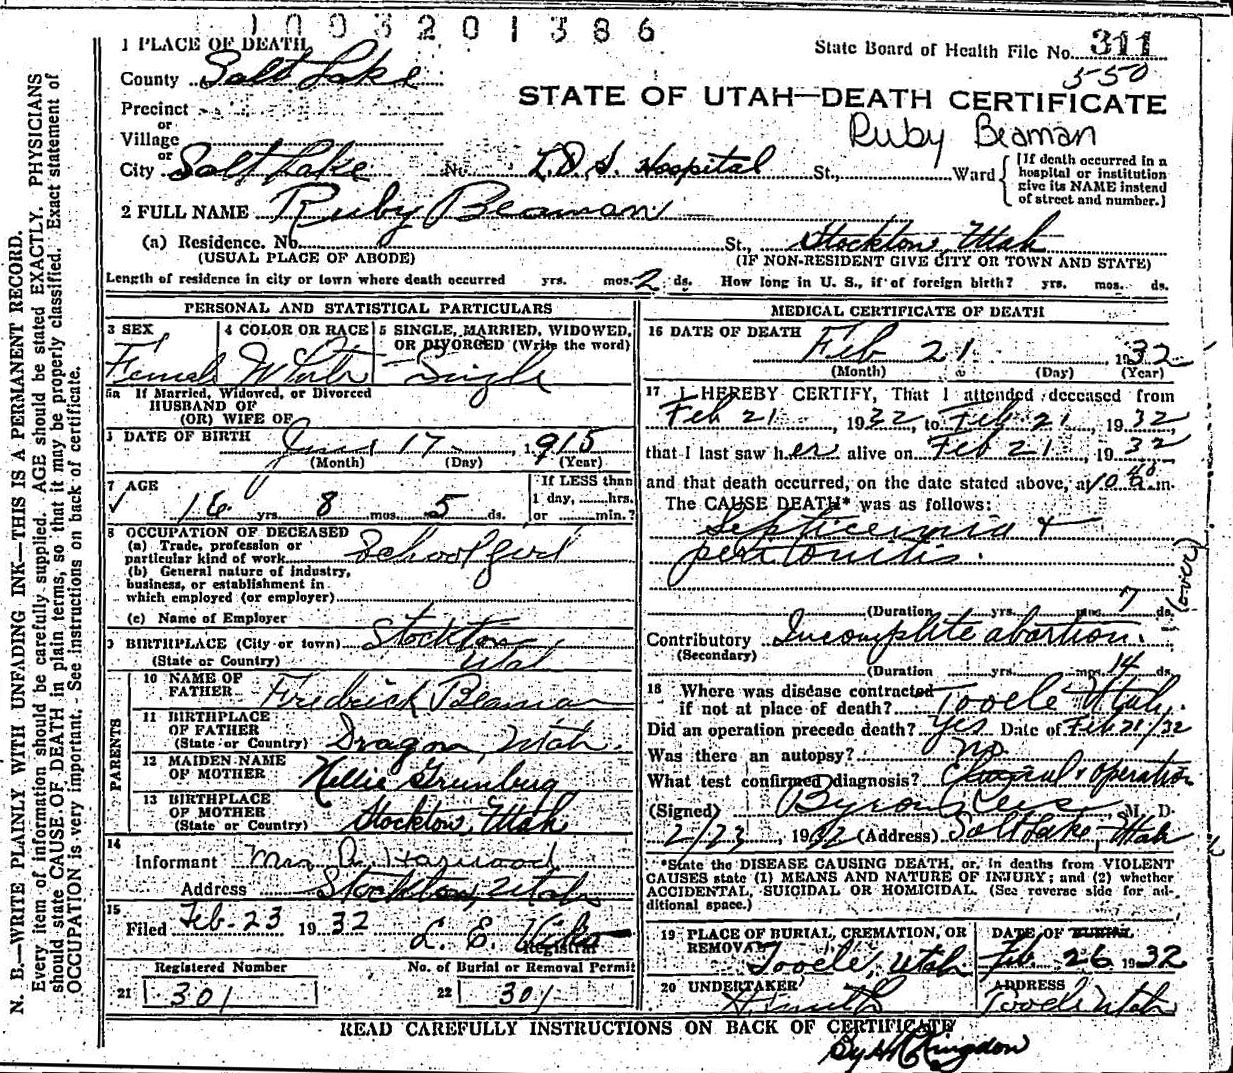 1003201386
State Board of Health File No. 311
550
STATE OF UTAH—DEATH CERTIFICATE
Ruby Beaman
1 PLACE OF DEATH
County Salt Lake
Precinct
or
Village
or
City Salt Lake No. L.D.S. Hospital St., Ward
[If death occurred in a
hospital or institution
give its NAME instead
of street and number.]
2 FULL NAME Ruby Beaman
(a) Residence. No. St., Stockton, Utah
(USUAL PLACE OF ABODE) (IF NON-RESIDENT GIVE CITY OR TOWN AND STATE)
Length of residence in city or town where death occurred yrs. mos. 2 ds. How long in U. S., if of foreign birth? yrs. mos. ds.
PERSONAL AND STATISTICAL PARTICULARS
3 SEX
Female
4 COLOR OR RACE
White
5 SINGLE, MARRIED, WIDOWED,
OR DIVORCED (Write the word)
Single
5a If Married, Widowed, or Divorced
HUSBAND OF
(OR) WIFE OF
DATE OF BIRTH June 17 1915
(Month) (Day) (Year)
7 AGE
16 yrs. 8 mos. 5 ds.
If LESS than
1 day, hrs.
or min.?
8 OCCUPATION OF DECEASED
(a) Trade, profession or
particular kind of work School girl
(b) General nature of industry,
business, or establishment in
which employed (or employer)
(c) Name of Employer
9 BIRTHPLACE (City or town) Stockton
(State or Country) Utah
PARENTS
10 NAME OF
FATHER Fredrick Beaman
11 BIRTHPLACE
OF FATHER
(State or Country) Dragon, Utah.
12 MAIDEN NAME
OF MOTHER Nellie
13 BIRTHPLACE
OF MOTHER
(State or Country) Stockton, Utah
14
Informant Mrs A. Harwood
Address Stockton, Utah
15
Filed Feb. 23 1932 L. E.
Registrar
Registered Number
21 301
No. of Burial or Removal Permit
22 301
MEDICAL CERTIFICATE OF DEATH
16 DATE OF DEATH Feb 21 1932
(Month) (Day) (Year)
17 I HEREBY CERTIFY, That I attended deceased from
Feb 21, 1932, to Feb 21, 1932
that I last saw her alive on Feb 21, 1932
and that death occurred, on the date stated above, at 10 40 a m.
The CAUSE DEATH* was as follows:
Septicemia +
peritonitis.
(over)
(Duration yrs. mos. 7 ds.
Contributory Incomplete abortion.
(Secondary)
(Duration yrs. mos. 14 ds.
18 Where was disease contracted
if not at place of death? Tooele Utah.
Did an operation precede death? Yes Date of Feb 21/32
Was there an autopsy? No
What test confirmed diagnosis? Clinical + operation
(Signed) Byron Rees M. D.
2/23, 1932 (Address) Salt Lake, Utah
*State the DISEASE CAUSING DEATH, or, in deaths from VIOLENT
CAUSES state (1) MEANS AND NATURE OF INJURY; and (2) whether
ACCIDENTAL, SUICIDAL OR HOMICIDAL. (See reverse side for ad-
ditional space.)
19 PLACE OF BURIAL, CREMATION, OR
REMOVAL Tooele, Utah
DATE OF BURIAL
Feb. 26 1932
20 UNDERTAKER
ADDRESS
Tooele Utah
READ CAREFULLY INSTRUCTIONS ON BACK OF CERTIFICATE
N. B.—WRITE PLAINLY WITH UNFADING INK—THIS IS A PERMANENT RECORD.
Every item of information should be carefully supplied. AGE should be stated EXACTLY. PHYSICIANS
should state CAUSE OF DEATH in plain terms, so that it may be properly classified. Exact statement of
OCCUPATION is very important. See instructions on back of certificate.